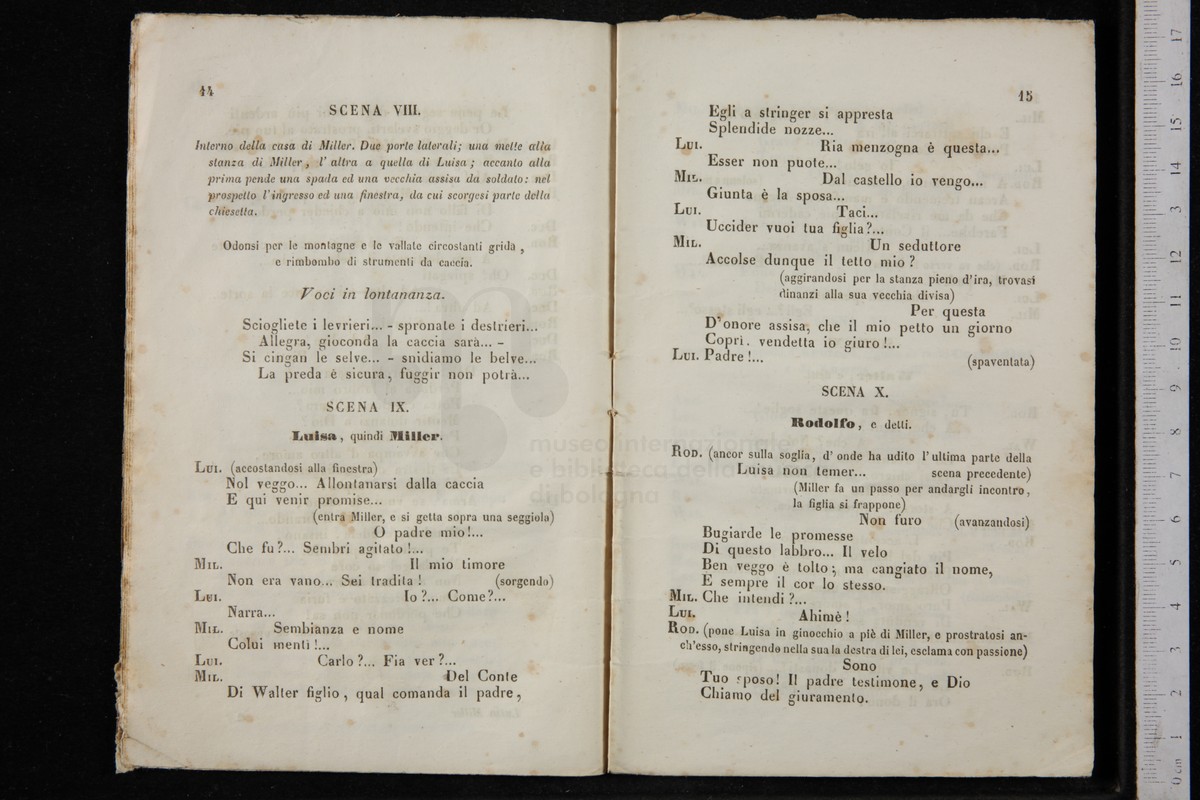 44
SCENA VIII.
Interno della casa di Miller. Due porte laterali; una mette alla
stanza di Miller, l'altra a quella di Luisa; accanto alla
prima pende una spada ed una vecchia assisa da soldato: nel
prospetto l'ingresso ed una finestra, da cui scorgesi parte della
chiesetta.
Odonsi per le montagne e le vallate circostanti grida,
e rimbombo di strumenti da caccia.
Voci in lontananza.
Sciogliete i levrieri... - spronate i destrieri...
Allegra, gioconda la caccia sarà... -
Si cingan le selve... - snidiamo le belve...
La preda è sicura, fuggir non potrà...
SCENA IX.
Luisa, quindi Miller.
LUI. (accostandosi alla finestra)
Nol veggo... Allontanarsi dalla caccia
E qui venir promise...
(entra Miller, e si getta sopra una seggiola)
O padre mio!...
Che fu?... Sembri agitato!...
MIL. Il mio timore
Non era vano... Sei tradita! (sorgendo)
LUI. Io?... Come?...
Narra...
MIL. Sembianza e nome
Colui mentì!...
LUI. Carlo?... Fia ver?...
MIL. Del Conte
Di Walter figlio, qual comanda il padre,
15
Egli a stringer si appresta
Splendide nozze...
LUI. Ria menzogna è questa...
Esser non puote...
MIL. Dal castello io vengo...
Giunta è la sposa...
LUI. Taci...
Uccider vuoi tua figlia?...
MIL. Un seduttore
Accolse dunque il tetto mio?
(aggirandosi per la stanza pieno d'ira, trovasi
dinanzi alla sua vecchia divisa)
Per questa
D'onore assisa, che il mio petto un giorno
Coprì, vendetta io giuro!...
LUI. Padre!... (spaventata)
SCENA X.
Rodolfo, e detti.
ROD. (ancor sulla soglia, d'onde ha udito l'ultima parte della
Luisa non temer... scena precedente)
(Miller fa un passo per andargli incontro,
la figlia si frappone)
Non furo (avanzandosi)
Bugiarde le promesse
Di questo labbro... Il velo
Ben veggo è tolto; ma cangiato il nome,
E sempre il cor lo stesso.
MIL. Che intendi?...
LUI. Ahimè!
ROD. (pone Luisa in ginocchio a piè di Miller, e prostratosi an-
ch'esso, stringendo nella sua la destra di lei, esclama con passione)
Sono
Tuo sposo! Il padre testimone, e Dio
Chiamo del giuramento.
museo internazionale
e biblioteca della
di bologna
0 cm 1 2 3 4 5 6 7 8 9 10 11 12 13 14 15 16 17